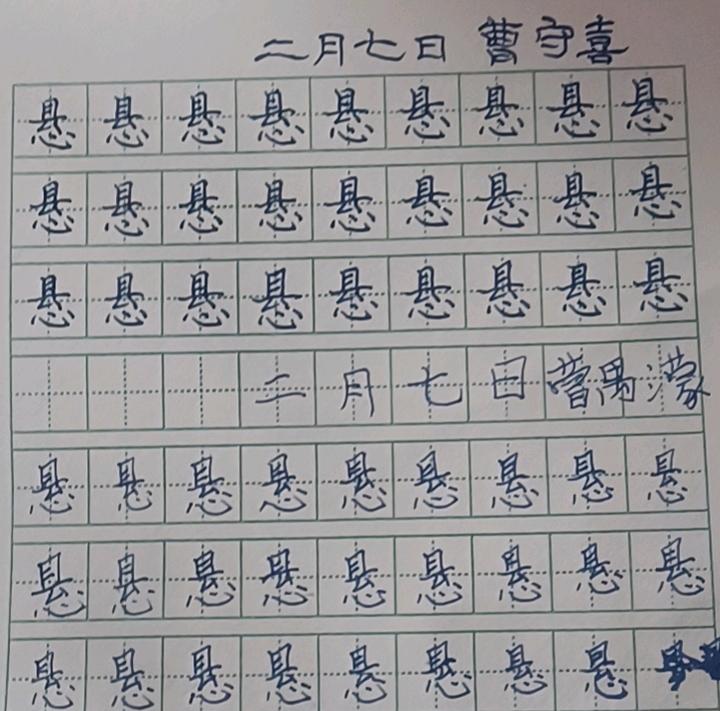 二月七日 曹守喜
悬悬悬悬悬悬悬悬悬
悬悬悬悬悬悬悬悬悬
悬悬悬悬悬悬悬悬悬
二月七日
悬悬悬悬悬悬悬悬悬
悬悬悬悬悬悬悬悬悬
悬悬悬悬悬悬悬悬